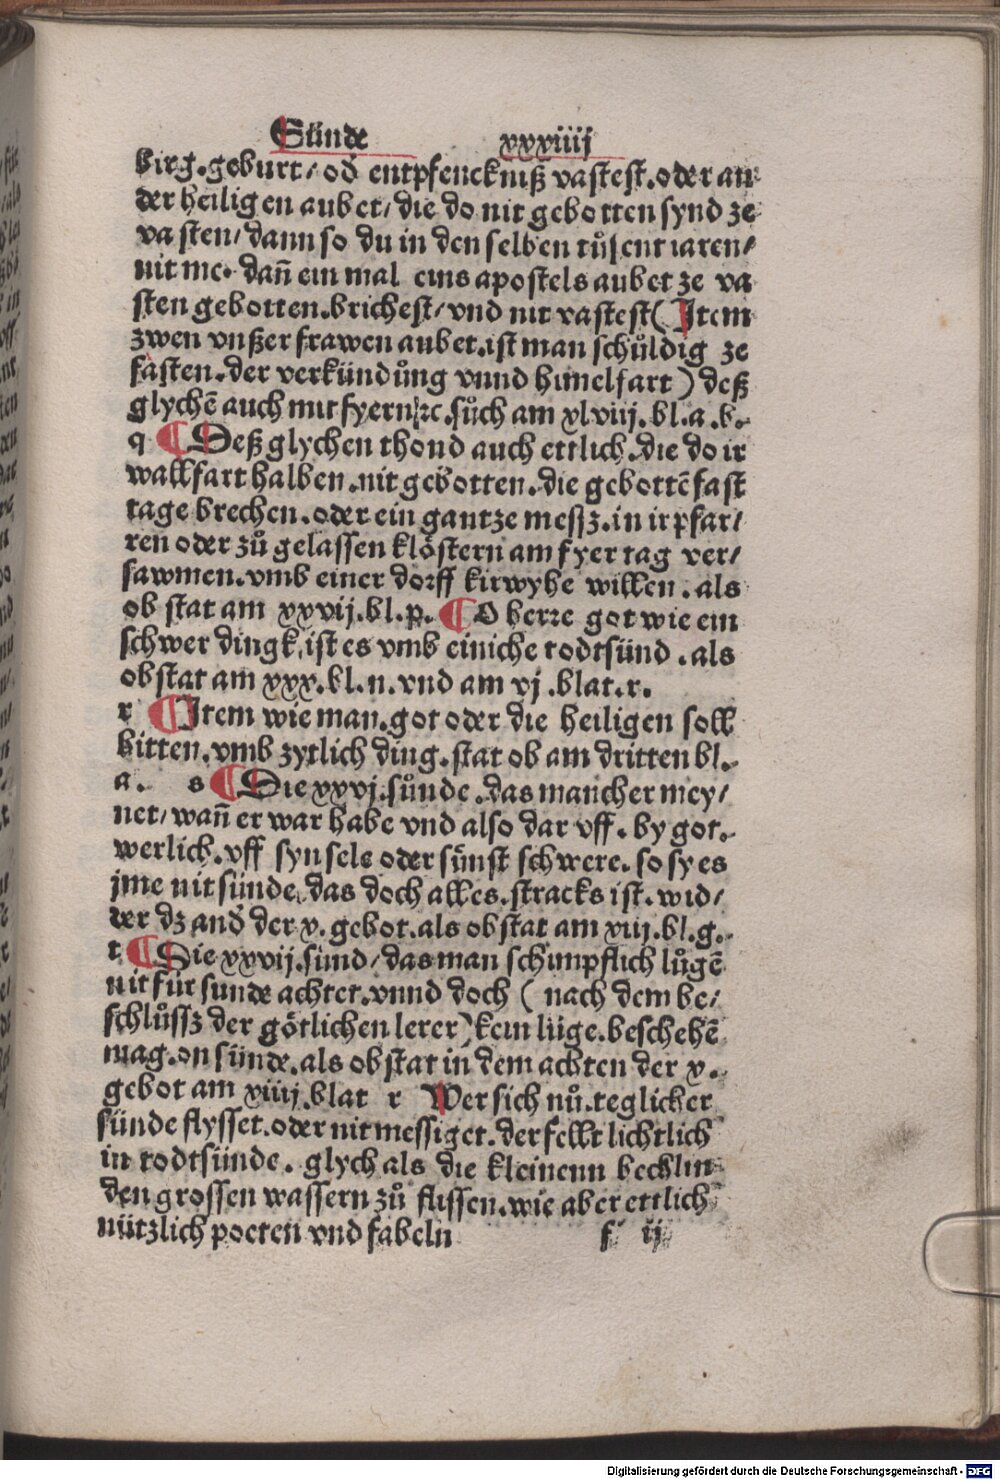 Sünde xxxiiij
birg.geburt/ od̄ entpfenckniß vastest.oder an
der heiligen aubet/ die do nit gebotten synd ze
vasten/ dann so du in den selben tůsent iaren/
nit me. dañ ein mal eins apostels aubet ze va
sten gebotten.brichest/ vnd nit vastest( Item
zwen vnßer frawen aubet.ist man schůldig ze
fasten.der verkündůng vnnd himelfart) deß
glychē auch mit fyern ꝛc.sůch am xlviij.bl.a.b.
q ¶ Deß glychen thond auch ettlich.die do ir
wallfart halben.nit gebotten.die gebottē fast
tage brechen.oder ein gantze messz.in ir pfar/
ren oder zů gelassen klöstern am fyer tag ver/
sawmen.vmb einer dorff kirwyhe willen.als
ob stat am xxvij.bl.p. ¶ O herre got wie ein
schwer dingk.ist es vmb einiche todtsünd.als
ob stat am xxx.bl.n.vnd am vj.blat.r.
r ¶ Item wie man.got oder die heiligen soll
bitten.vmb zytlich ding.stat ob am dritten bl.
a. s ¶ Die xxvj.sůnde.das mancher mey/
net/ wañ er war habe vnd also dar vff.by got.
werlich.vff syn sele oder sünst schwere.so sy es
jme nit sünde.das doch alles.stracks ist.wid/
der dz and̄ der x.gebot.als ob stat am xiij.bl.g.
t ¶ Die xxvij.sünd/ das man schimpflich lůgē
nit für sunde achtet.vnnd doch ( nach dem be/
schlůssz der götlichen lerer) kein lüge.beschehē
mag.on sünde.als ob stat in dem achten der x.
gebot am xiiij.blat r Wer sich nů.teglicker
sünde flysset.oder nit messiget.der fellt lichtlich
in todtsünde. glych als die kleinenn bechlin
den grossen wassern zů flissen.wie aber ettlich
nützlich poeten vnd fabeln f ij
Digitalisierung gefördert durch die Deutsche Forschungsgemeinschaft - DFG